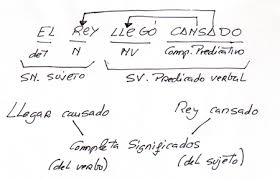 EL REY LLEGÓ CANSADO
det N NV Comp. Predicativo
SN. Sujeto SV. Predicado verbal
Llegar cansado Rey cansado
Completa Significados
(del verbo) (del sujeto)